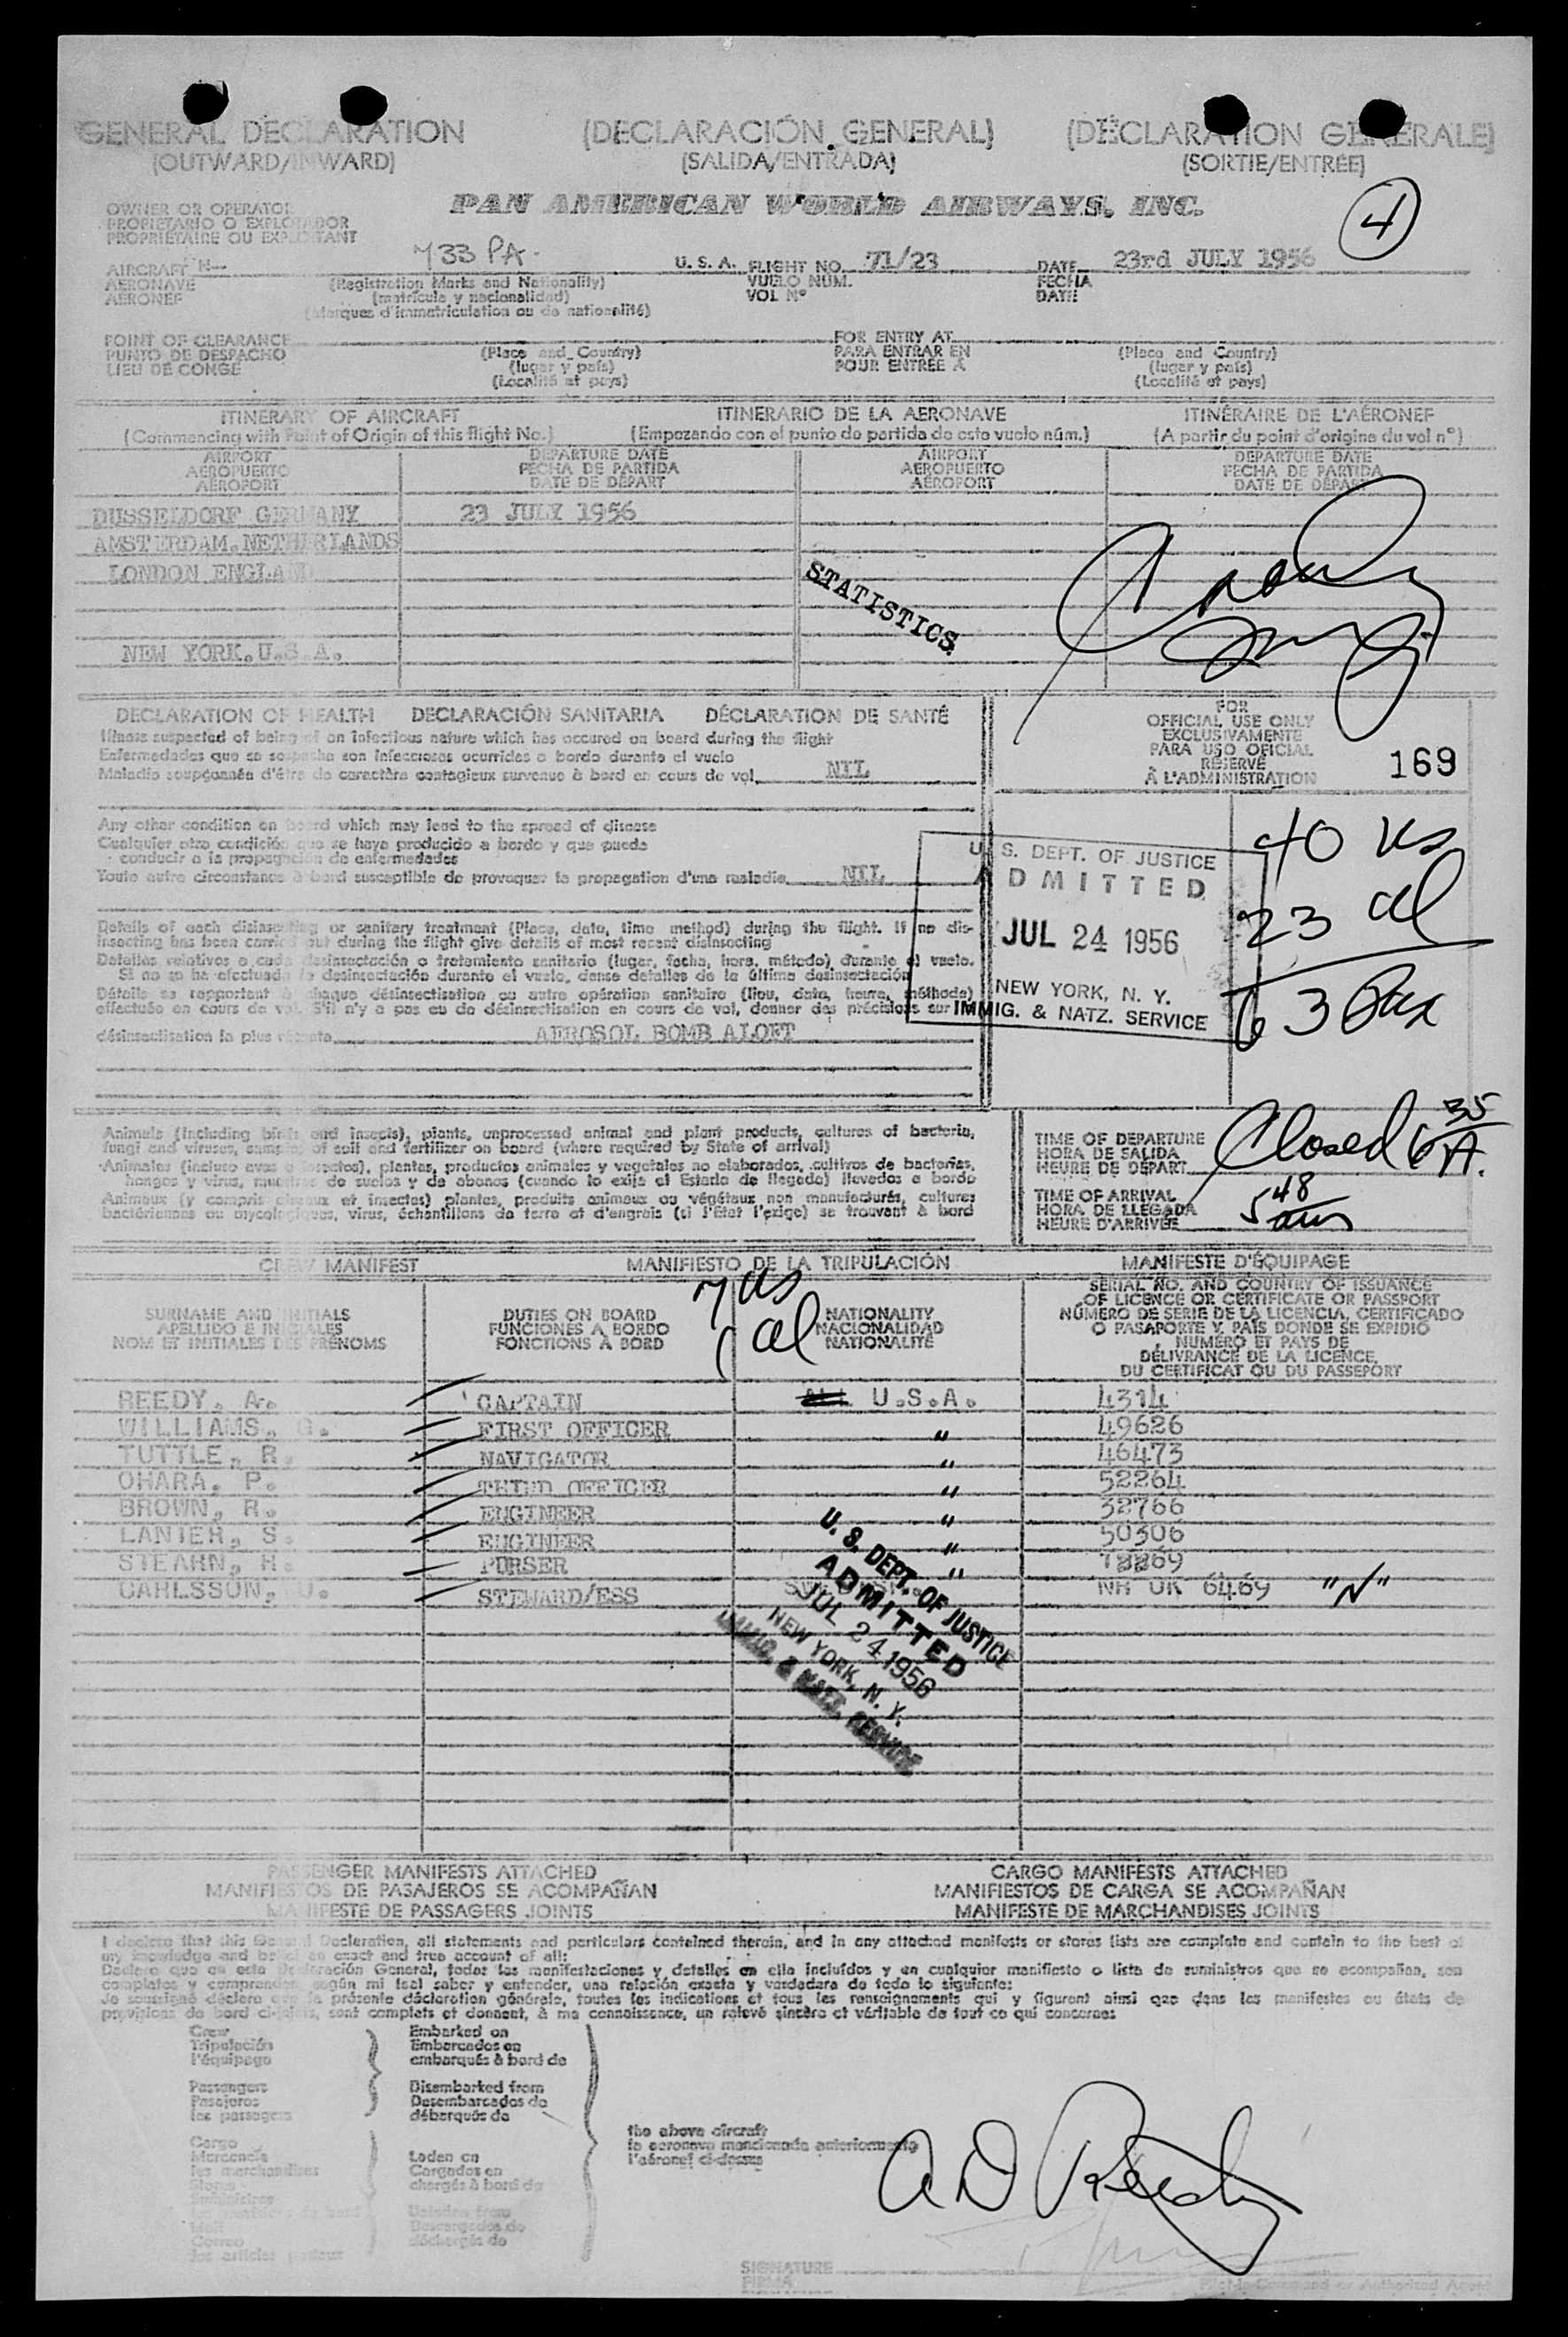 GENERAL DECLARATION (DECLARACIÓN GENERAL) (DÉCLARATION GENERALE)
(OUTWARD/INWARD) (SALIDA/ENTRADA) (SORTIE/ENTRÉE)
PAN AMERICAN WORLD AIRWAYS, INC.
4
OWNER OR OPERATOR
PROPIETARIO O EXPLOTADOR
PROPRIÉTAIRE OU EXPLOITANT
AIRCRAFT N— 733 PA. U. S. A. FLIGHT NO. 71/23 DATE 23rd JULY 1956
AERONAVE (Registration Marks and Nationality) VUELO NÚM. FECHA
AÉRONEF (matrícula y nacionalidad) VOL Nº DATE
(Marques d'immatriculation ou de nationalité)
POINT OF CLEARANCE FOR ENTRY AT
PUNTO DE DESPACHO (Place and Country) PARA ENTRAR EN (Place and Country)
LIEU DE CONGÉ (lugar y país) POUR ENTRÉE À (lugar y país)
(Localité et pays) (Localité et pays)
ITINERARY OF AIRCRAFT ITINERARIO DE LA AERONAVE ITINÉRAIRE DE L'AÉRONEF
(Commencing with Point of Origin of this flight No.) (Empezando con el punto de partida de este vuelo núm.) (A partir du point d'origine du vol nº)
AIRPORT DEPARTURE DATE AIRPORT DEPARTURE DATE
AEROPUERTO FECHA DE PARTIDA AEROPUERTO FECHA DE PARTIDA
AÉROPORT DATE DE DÉPART AÉROPORT DATE DE DÉPART
DUSSELDORF GERMANY 23 JULY 1956
AMSTERDAM.NETHERLANDS
LONDON ENGLAND
STATISTICS.
NEW YORK.U.S.A.
DECLARATION OF HEALTH DECLARACIÓN SANITARIA DÉCLARATION DE SANTÉ
Illness suspected of being of an infectious nature which has occured on board during the flight
Enfermedades que se sospecha son infecciosas ocurridas a bordo durante el vuelo
Maladie soupçonnée d'être de caractère contagieux survenue à bord en cours de vol. NIL
FOR
OFFICIAL USE ONLY
EXCLUSIVAMENTE
PARA USO OFICIAL
RÉSERVÉ
À L'ADMINISTRATION
169
Any other condition on board which may lead to the spread of disease
Cualquier otra condición que se haya producido a bordo y que pueda
conducir a la propagación de enfermedades
Toute autre circonstance à bord susceptible de provoquer la propagation d'une maladie NIL
40 us
23 al
63 Pax
U. S. DEPT. OF JUSTICE
ADMITTED
JUL 24 1956
NEW YORK, N. Y.
IMMIG. & NATZ. SERVICE
Details of each disinsecting or sanitary treatment (Place, date, time method) during the flight. If no dis-
insecting has been carried out during the flight give details of most recent disinsecting
Detalles relativos a cada desinsectación o tratamiento sanitario (lugar, fecha, hora, método) durante el vuelo.
Si no se ha efectuado la desinsectación durante el vuelo, dense detalles de la última desinsectación
Détails se rapportant à chaque désinsectisation ou autre opération sanitaire (lieu, date, heure, méthode)
effectuée en cours de vol. S'il n'y a pas eu de désinsectisation en cours de vol, donner des précisions sur
désinsectisation la plus récente AEROSOL BOMB ALOFT
Animals (including birds and insects), plants, unprocessed animal and plant products, cultures of bacteria,
fungi and viruses, samples of soil and fertilizer on board (where required by State of arrival)
Animales (incluso aves e insectos), plantas, productos animales y vegetales no elaborados, cultivos de bacterias,
hongos y virus, muestras de suelos y de abonos (cuando lo exija el Estado de llegada) llevados a bordo
Animaux (y compris oiseaux et insectes) plantes, produits animaux ou végétaux non manufacturés, cultures
bactériennes ou mycologiques, virus, échantillons de terre et d'engrais (si l'État l'exige) se trouvant à bord
TIME OF DEPARTURE
HORA DE SALIDA
HEURE DE DÉPART Closed 6 35 A.
TIME OF ARRIVAL
HORA DE LLEGADA
HEURE D'ARRIVÉE 5 48 am
CREW MANIFEST MANIFIESTO DE LA TRIPULACIÓN MANIFESTE D'ÉQUIPAGE
7 us
1 al
SURNAME AND INITIALS DUTIES ON BOARD NATIONALITY
APELLIDO E INICIALES FUNCIONES A BORDO NACIONALIDAD
NOM ET INITIALES DES PRÉNOMS FONCTIONS À BORD NATIONALITÉ
SERIAL NO. AND COUNTRY OF ISSUANCE
OF LICENCE OR CERTIFICATE OR PASSPORT
NÚMERO DE SERIE DE LA LICENCIA, CERTIFICADO
O PASAPORTE Y PAÍS DONDE SE EXPIDIÓ
NUMÉRO ET PAYS DE
DÉLIVRANCE DE LA LICENCE,
DU CERTIFICAT OU DU PASSEPORT
REEDY, A. CAPTAIN ALL U.S.A. 4314
WILLIAMS, G. FIRST OFFICER " 49626
TUTTLE, R. NAVIGATOR " 46473
OHARA, P. THIRD OFFICER " 52264
BROWN, R. ENGINEER " 32766
LANIER, S. ENGINEER " 50306
STEARN, H. PURSER "
CARLSSON, U. STEWARD/ESS NH UK 6469 "N"
U. S. DEPT. OF JUSTICE
ADMITTED
JUL 24 1956
NEW YORK, N. Y.
IMMIG. & NATZ. SERVICE
PASSENGER MANIFESTS ATTACHED CARGO MANIFESTS ATTACHED
MANIFIESTOS DE PASAJEROS SE ACOMPAÑAN MANIFIESTOS DE CARGA SE ACOMPAÑAN
MANIFESTE DE PASSAGERS JOINTS MANIFESTE DE MARCHANDISES JOINTS
I declare that this General Declaration, all statements and particulars contained therein, and in any attached manifests or stores lists are complete and contain to the best of
my knowledge and belief an exact and true account of all:
Declaro que en esta Declaración General, todas las manifestaciones y detalles en ella incluídos y en cualquier manifiesto o lista de suministros que se acompañan, son
completos y comprenden según mi leal saber y entender, una relación exacta y verdadera de todo lo siguiente:
Je soussigné déclare que la présente déclaration générale, toutes les indications et tous les renseignements qui y figurent ainsi que dans les manifestes ou états de
provisions de bord ci-joints, sont complets et donnent, à ma connaissance, un relevé sincère et véritable de tout ce qui concerne:
Crew Embarked on
Tripulación Embarcados en
l'équipage embarqués à bord de
Passengers Disembarked from
Pasajeros Desembarcados de
les passagers débarqués de
the above aircraft
la aeronave mencionada anteriormente
l'aéronef ci-dessus
Cargo
Mercancía Laden on
les marchandises Cargados en
Stores chargés à bord de
Suministros
Mail Unladen from
Correo Descargados de
les articles postaux déchargés de
A D Reedy
SIGNATURE
FIRMA